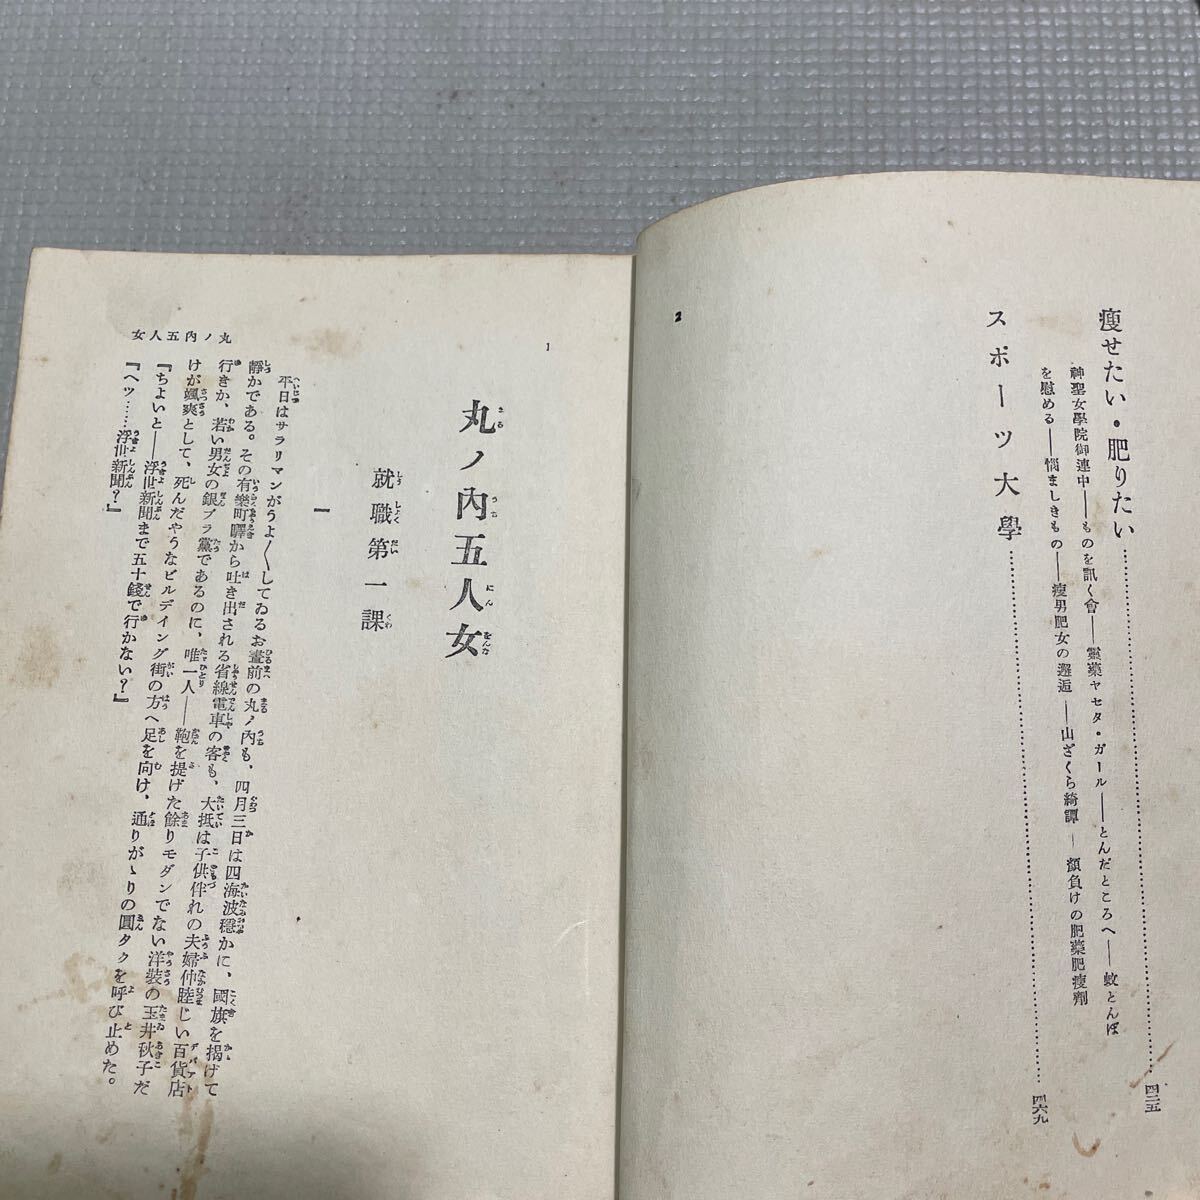 2
痩せたい・肥りたい……………………四二五
神聖女學院御連中——ものを訊く會——靈藥ヤセタ・ガール——とんだところへ——蚊とんぼ
を慰める——惱ましきもの——瘦男肥女の邂逅——山ざくら綺譚——顏負けの肥藥肥瘦劑
スポーツ大學……………………四六九
1
丸ノ內五人女
就職第一課
一
平日はサラリマンがうよ〳〵してゐるお晝前の丸ノ內も、四月三日は四海波穩かに、國旗を揭げて
靜かである。その有樂町驛から吐き出される省線電車の客も、大抵は子供伴れの夫婦仲睦じい百貨店
行きか、若い男女の銀ブラ黨であるのに、唯一人——鞄を提げた餘りモダンでない洋裝の玉井秋子だ
けが颯爽として、死んだやうなビルデイング街の方へ足を向け、通りがゝりの圓タクを呼び止めた。
『ちよいと——浮世新聞まで五十錢で行かない？』
『ヘツ……浮世新聞？』
丸ノ內五人女